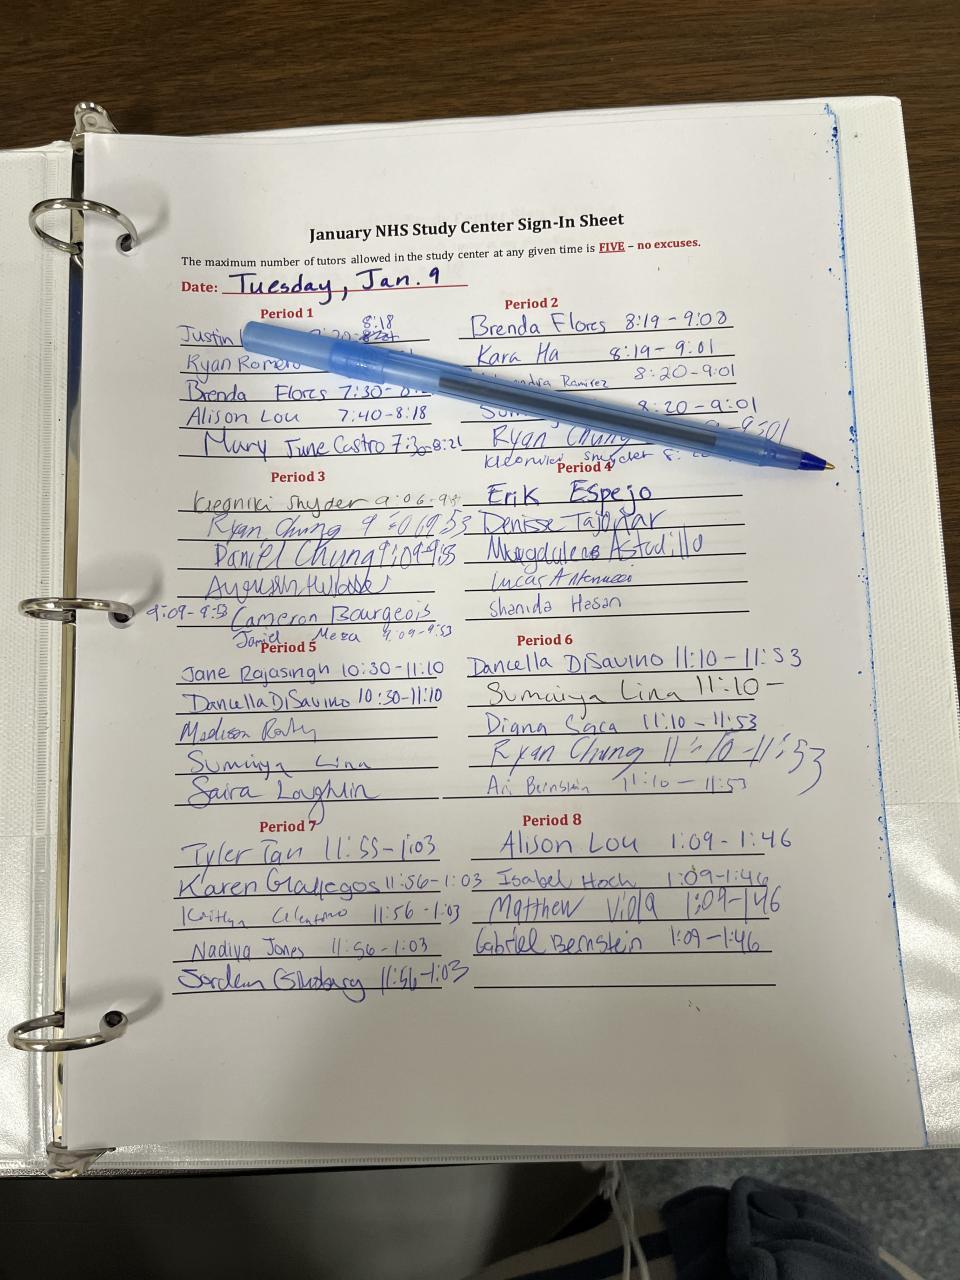 January NHS Study Center Sign-In Sheet
The maximum number of tutors allowed in the study center at any given time is FIVE – no excuses.
Date: Tuesday, Jan. 9
Period 1
8:18
Justin
Ryan Romero
Brenda Flores 7:30-
Alison Lou 7:40-8:18
Mary June Castro 7:30-8:21
Period 2
Brenda Flores 8:19-9:03
Kara Ha 8:19-9:01
Ramirez 8:20-9:01
8:20-9:01
Ryan Chung
Snyder 8:
Period 3
Kleoniki Snyder 9:06-
Ryan Chung 9:06-9:53
Daniel Chung 9:09-9:53
9:09-9:53 Cameron Bourgeois
Jamiel Meza 9:09-9:53
Period 4
Erik Espejo
Denisse
Astudillo
Lucas
Shanida Hasan
Period 5
Jane Rajasingh 10:30-11:10
Daniella DiSavino 10:30-11:10
Madison
Sumaiya Lina
Saira Loughlin
Period 6
Daniella DiSavino 11:10-11:53
Sumaiya Lina 11:10-
Diana Saca 11:10-11:53
Ryan Chung 11:10-11:53
Ari Bernstein 11:10-11:53
Period 7
Tyler Tan 11:55-1:03
Karen Gallegos 11:56-1:03
Kaitlyn Celentano 11:56-1:03
Nadiya Jones 11:56-1:03
Jordan Ginzburg 11:56-1:03
Period 8
Alison Lou 1:09-1:46
Isabel Hoch 1:09-1:46
Matthew Villa 1:09-1:46
Gabriel Bernstein 1:09-1:46